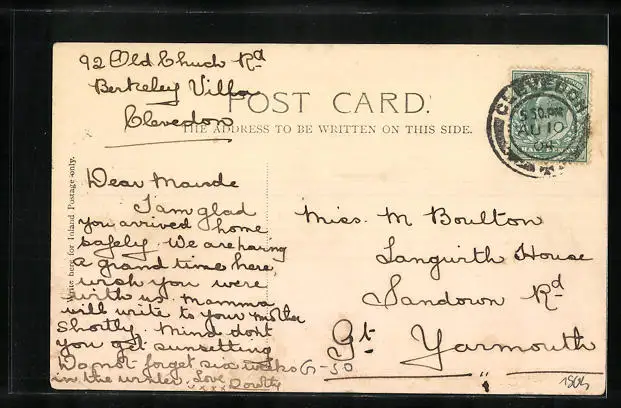 92 Old Chuch Rd
Berkeley Villa
Clevedon
POST CARD.
THE ADDRESS TO BE WRITTEN ON THIS SIDE.
CLEVEDON
5 50 PM
AU 10
04
HALFPENNY
Write here for Inland Postage only.
Dear Maude
I am glad
you arrived home
safely. We are having
a grand time here,
wish you were
with us. Mamma
will write to your mother
shortly. Mind don't
you get sunsetting
Do not forget six weeks
in the winter. Love
xxxx
Miss. M Boulton
Langwith House
Sandown Rd
Gt. Yarmouth
6-30
1904